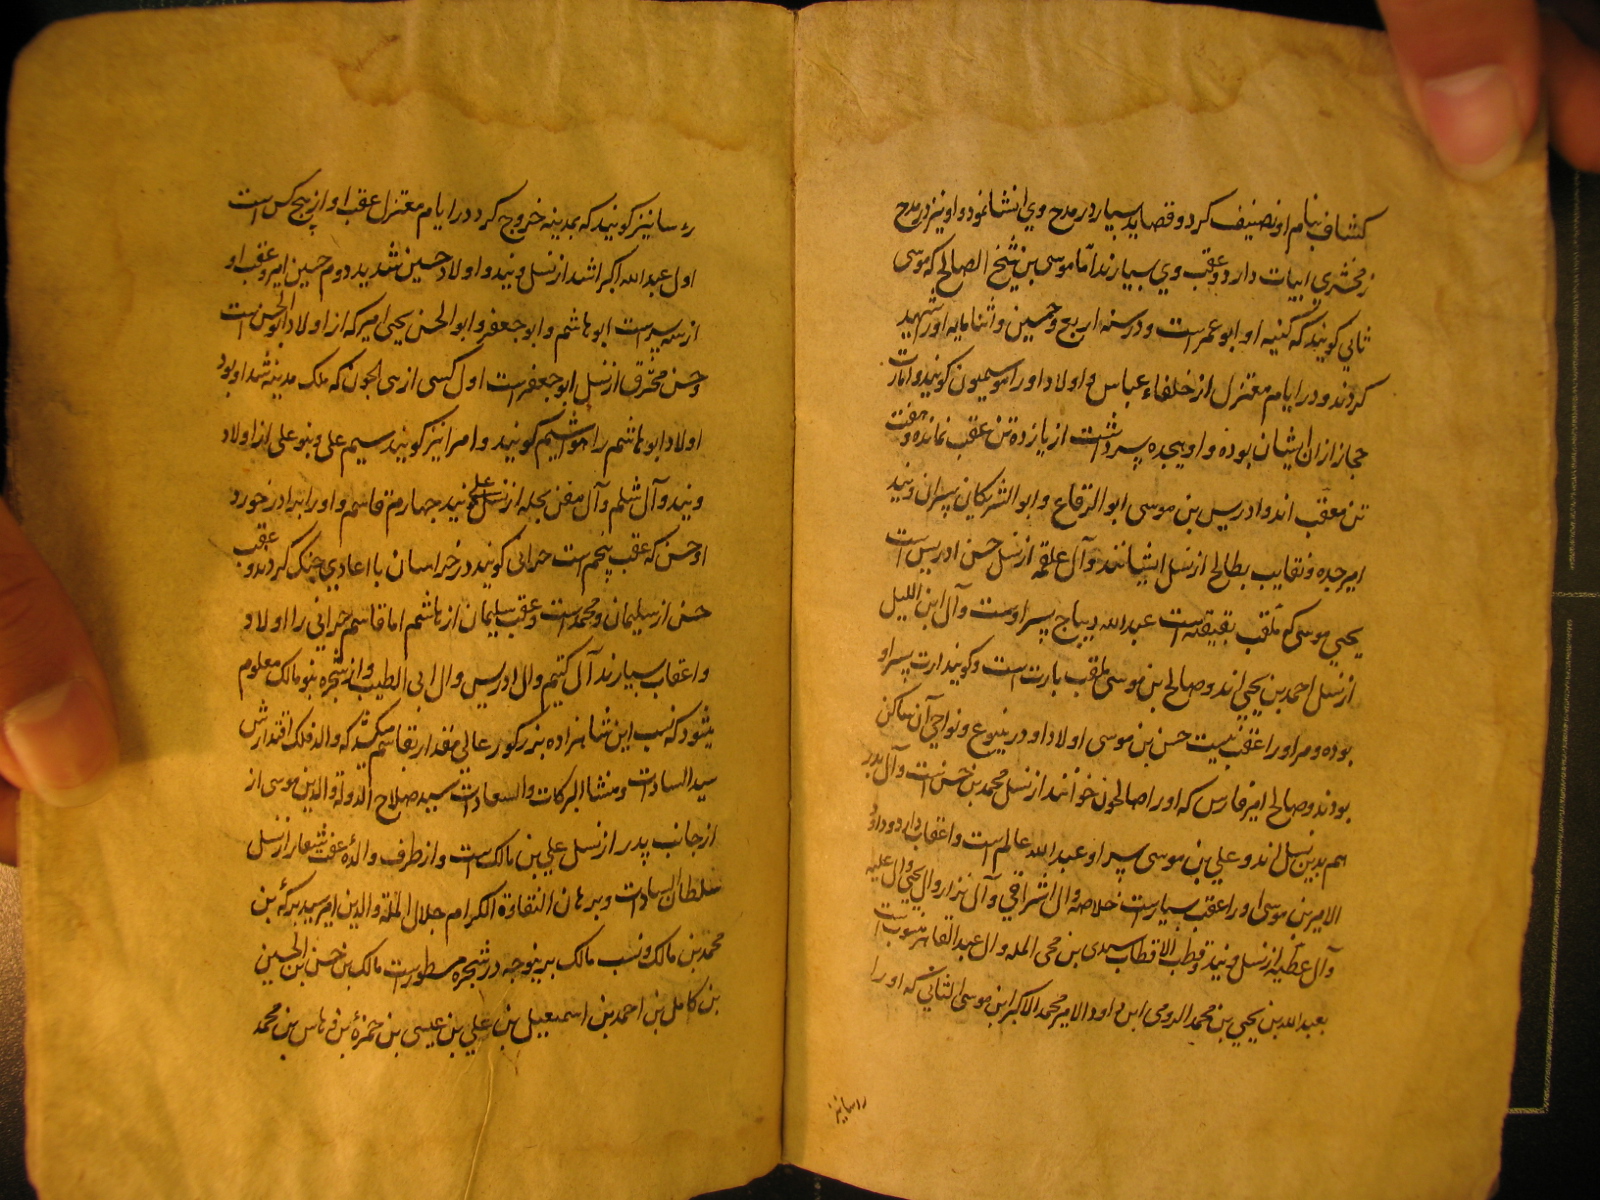 کشاف بنام او تصنیف کرد و قصاید بسیار در مدح وی انشا نمود و او نیز در مدح
زمخشری ابیات دارد و عقب وی بسیارند اما موسی بن شیخ الصالح که موسی
ثانی کویند که کنیه او ابو عمر است و در سنه اربع و خمسین و اثنا مایه اورا شهید
کردند و در ایام معتزل از خلفاء عباس و اولاد اورا موسیون کویند و امارت
حجاز ازان ایشان بوده و او هیجده پسر داشت از یازده تن عقب نمانده و هفت
تن معقب اند و ادریس بن موسی ابو الرقاع و ابو الشریکان پسران ویند
امیر جده و نقایب بطالح از نسل ایشانند و آل علقمه از نسل حسن ادریس است
یحیی موسی که ملقب بفیقیه است عبد الله دیباج پسر اوست و آل ابن اللیل
از نسل احمد بن یحیی اند و صالح بن موسی ملقب بارت است و کویند ارت پسر او
بوده و مر او را عقب نیست حسن بن موسی اولاد او در ینبوع و نواحی آن ساکن
بودند و صالح امیر فارس که اورا صالحون خوانند از نسل محمد بن حسن است و آل بدر
هم بدین نسل اند و علی بن موسی پسر او عبد الله عالم است و اعقاب دارد و داود
الامیر بن موسی او را عقب بسیار است خلاصه وال اشراقی و آل نزار وال یحیی وال علیه
وآل عطیه از نسل ویند و قطب الاقطاب سیدی بن محی المله وال عبد القاهر منسوب است
بعبد الله بن یحیی بن محمد الرومی ابن داود الامیر محمد الاکبر ابن موسی الثانی که اورا
رء سانیز
رء سانیز کویند که بمدینه خروج کرد در ایام معتزل عقب او از پنج کس است
اول عبد الله اکبر اشد از نسل ویند و اولاد حسین شدید دوم حسین امیر و عقب او
از سه پسر است ابو هاشم و ابو جعفر و ابو الحسن یحیی امیر که از اولاد ابو الحسن است
و حسن محترق از نسل ابو جعفر است اول کسی از بنی الجون که ملک مدینه شد او بود
اولاد ابو هاشم را هواشم کویند و امرا نیز کویند سیم علی و بنو علی از اولاد
ویند و آل شلم و آل مفن بجله از نسل علی ویند چهارم قاسم و اورا برادر خورد
او حسن که عقب پنجم است حرانی کویند در خراسان با اعادی جنک کردند و عقب
حسن از سلیمان و محمد است و عقب سلیمان از هاشم اما قاسم حرانی را اولاد
و اعقاب بسیارند آل کتیم وال ادریس وال ابی الطیب و از شجره بنو مالک معلوم
میشود که نسب این شاهزاده بزرکوار عالی مقدار بقاسم میکشد که والد فلک اقتدارش
سید السادات و منشا البرکات والسعادات سید صلاح الدولة والدین موسی از
از جانب پدر از نسل علی بن مالک است و از طرف والدهٔ عفت شعار از نسل
سلطان السادات و برهان النقاوة الکرام جلال الملة والدین امیر سید برکهٔ بن
محمد بن مالک و نسب مالک برینوجه در شجره مسطور است مالک بن حسن بن الحسین
بن کامل بن احمد بن اسمعیل بن علی بن عیسی بن حمزهٔ بن وهاس بن محمد